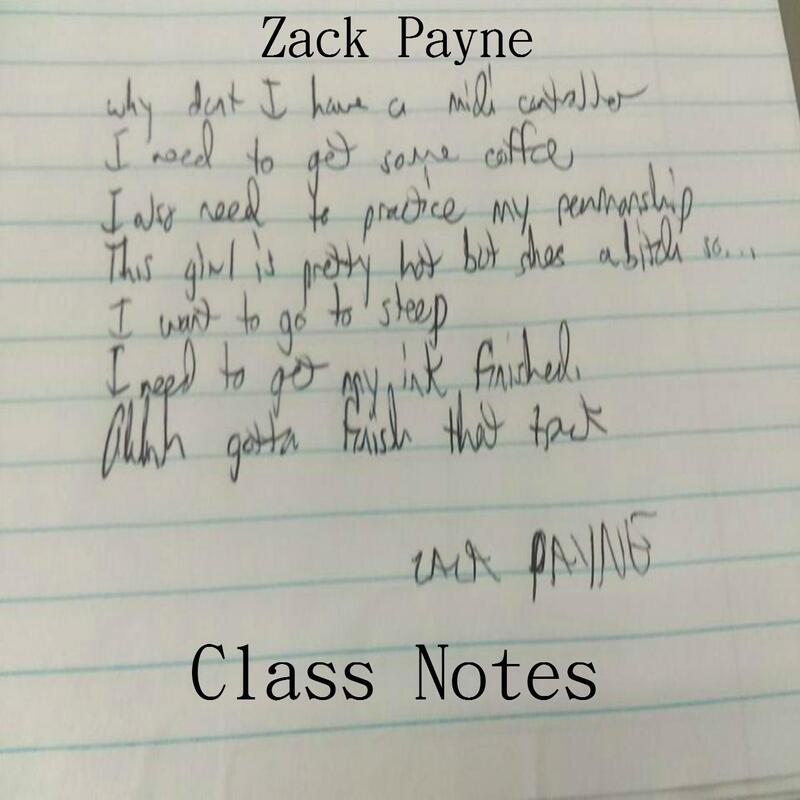 Zack Payne
why dont I have a midi controller
I need to get some coffee
I also need to practice my penmanship
This girl is pretty hot but shes a bitch so...
I want to go to sleep
I need to get my ink finished.
Ohhhh gotta finish that track
ZACK PAYNE
Class Notes